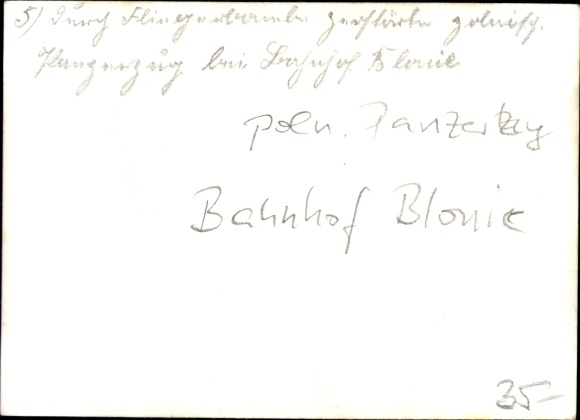 5) Durch Fliegerbombe zerstörter polnisch.
Panzerzug bei Bahnhof Blonie
poln. Panzerzug
Bahnhof Blonie
35-